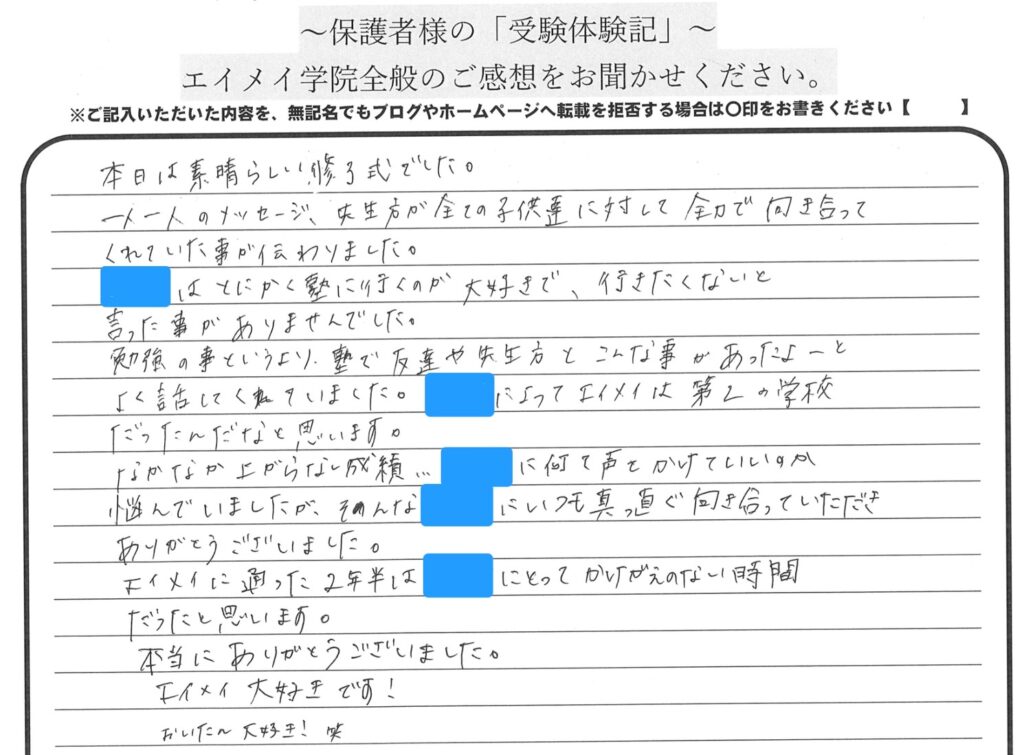 ～保護者様の「受験体験記」～
エイメイ学院全般のご感想をお聞かせください。
※ご記入いただいた内容を、無記名でもブログやホームページへ転載を拒否する場合は〇印をお書きください【　　　】
本日は素晴らしい修了式でした。
一人一人のメッセージ、先生方が全ての子供達に対して全力で向き合って
くれていた事が伝わりました。
はとにかく塾に行くのが大好きで、行きたくないと
言った事がありませんでした。
勉強の事というより、塾で友達や先生方とこんな事があったよーと
よく話してくれていました。によってエイメイは第2の学校
だったんだなと思います。
なかなか上がらない成績…に何て声をかけていいのか
悩んでいましたが、そんなにいつも真っ直ぐ向き合っていただき
ありがとうございました。
エイメイに通った2年半はにとってかけがえのない時間
だったと思います。
本当にありがとうございました。
エイメイ大好きです！
おいたん大好き！笑